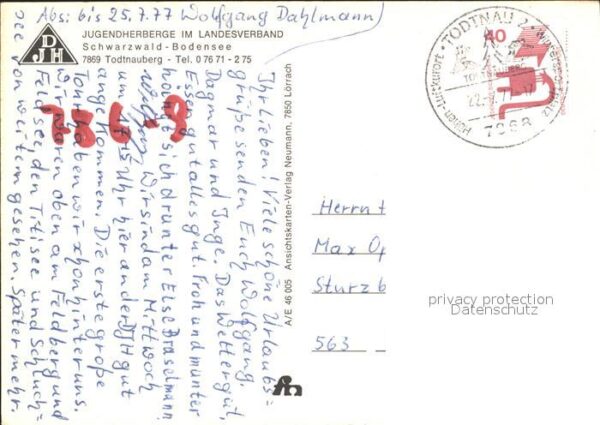 Abs: bis 25.7.77 Wolfgang Dahlmann
DJH
JUGENDHERBERGE IM LANDESVERBAND
Schwarzwald-Bodensee
7869 Todtnauberg - Tel. 0 76 71 - 275
Ihr Lieben! Viele schöne Urlaubs=
grüße senden Euch Wolfgang,
Dagmar und Inge. Das Wetter gut,
Essen gut alles gut. Froh und munter
sich drunter Else Braselmann
Wir sind am Mittwoch
um 17.15 Uhr hier an der DJH gut
angekommen. Die erste große
Tour haben wir schon hinter uns.
Wir waren oben am Feldberg und
Feldsee, den Titisee und Schluch=
see von weitem gesehen. Später mehr.
A/E 46 005 Ansichtskarten-Verlag Neumann, 7850 Lörrach
TODTNAU 2
7868
40
Herrn
Max Op
Sturzb
563
privacy protection
Datenschutz